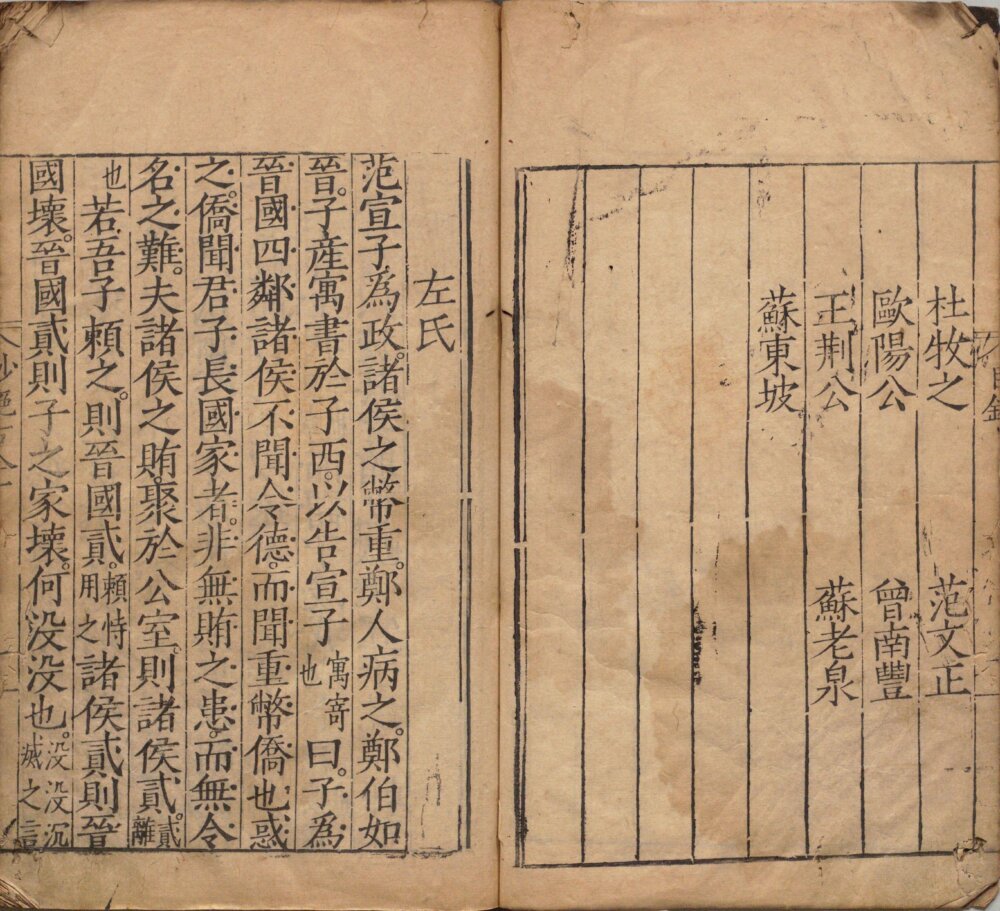 目錄
杜牧之 范文正
歐陽公 曾南豐
王荆公 蘇老泉
蘇東坡
左氏
范宣子為政。諸侯之幣重。鄭人病之。鄭伯如
晉。子產寓書於子西。以告宣子寓寄也曰。子為
晉國四鄰諸侯不聞令德。而聞重幣僑也惑
之。僑聞君子長國家者。非無賄之患。而無令
名之難。夫諸侯之賄。聚於公室。則諸侯貳。貳離
也若吾子頼之。則晉國貳。頼恃用之諸侯貳則晉
國壞。晉國貳則子之家壞。何没没也。没没沉滅之言